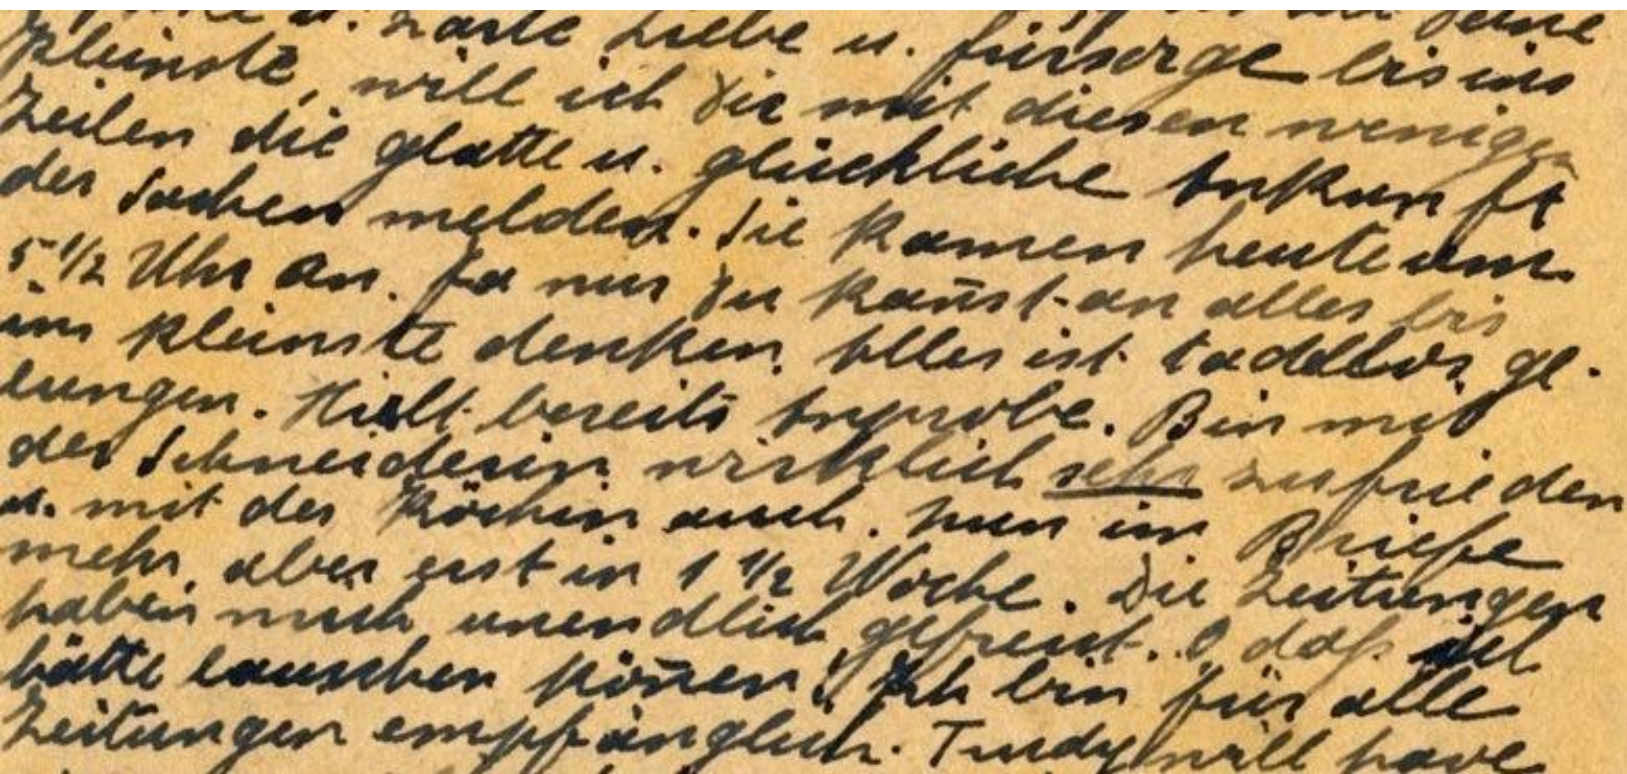 u. zarte Liebe u. Fürsorge bis ins
kleinste, will ich Dir mit diesen wenigen
Zeilen die glatte u. glückliche Ankunft
der Sachen melden. Sie kamen heute um
5 1/2 Uhr an. Ja nur Du kan̄st an alles bis
ins kleinste denken. Alles ist tadellos ge-
lungen. Hielt bereits Anprobe. Bin mit
der Schneiderin wirklich sehr zufrieden
u. mit der Köchin auch. Nun im Briefe
mehr, aber erst in 1 1/2 Woche. Die Zeitungen
haben mich unendlich gefreut. O, daß ich
hätte lauschen kön̄en! Ich bin für alle
Zeitungen empfänglich. Trudy will have